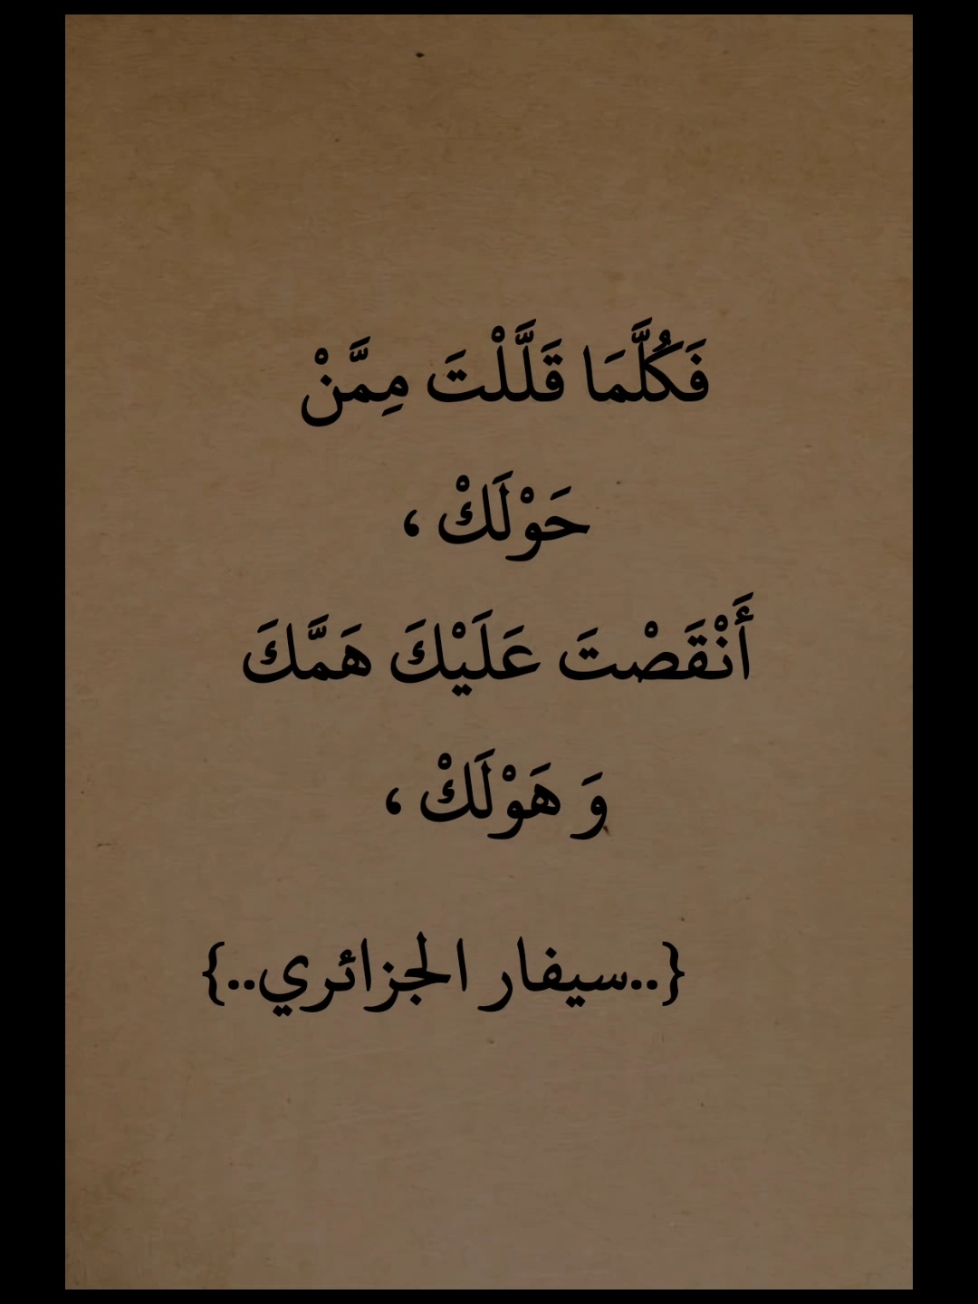 فَكُلَّمَا قَلَّلْتَ مِمَّنْ
حَوْلَكْ ،
أَنْقَصْتَ عَلَيْكَ هَمَّكَ
وَ هَوْلَكْ ،
{..سيفار الجزائري..}